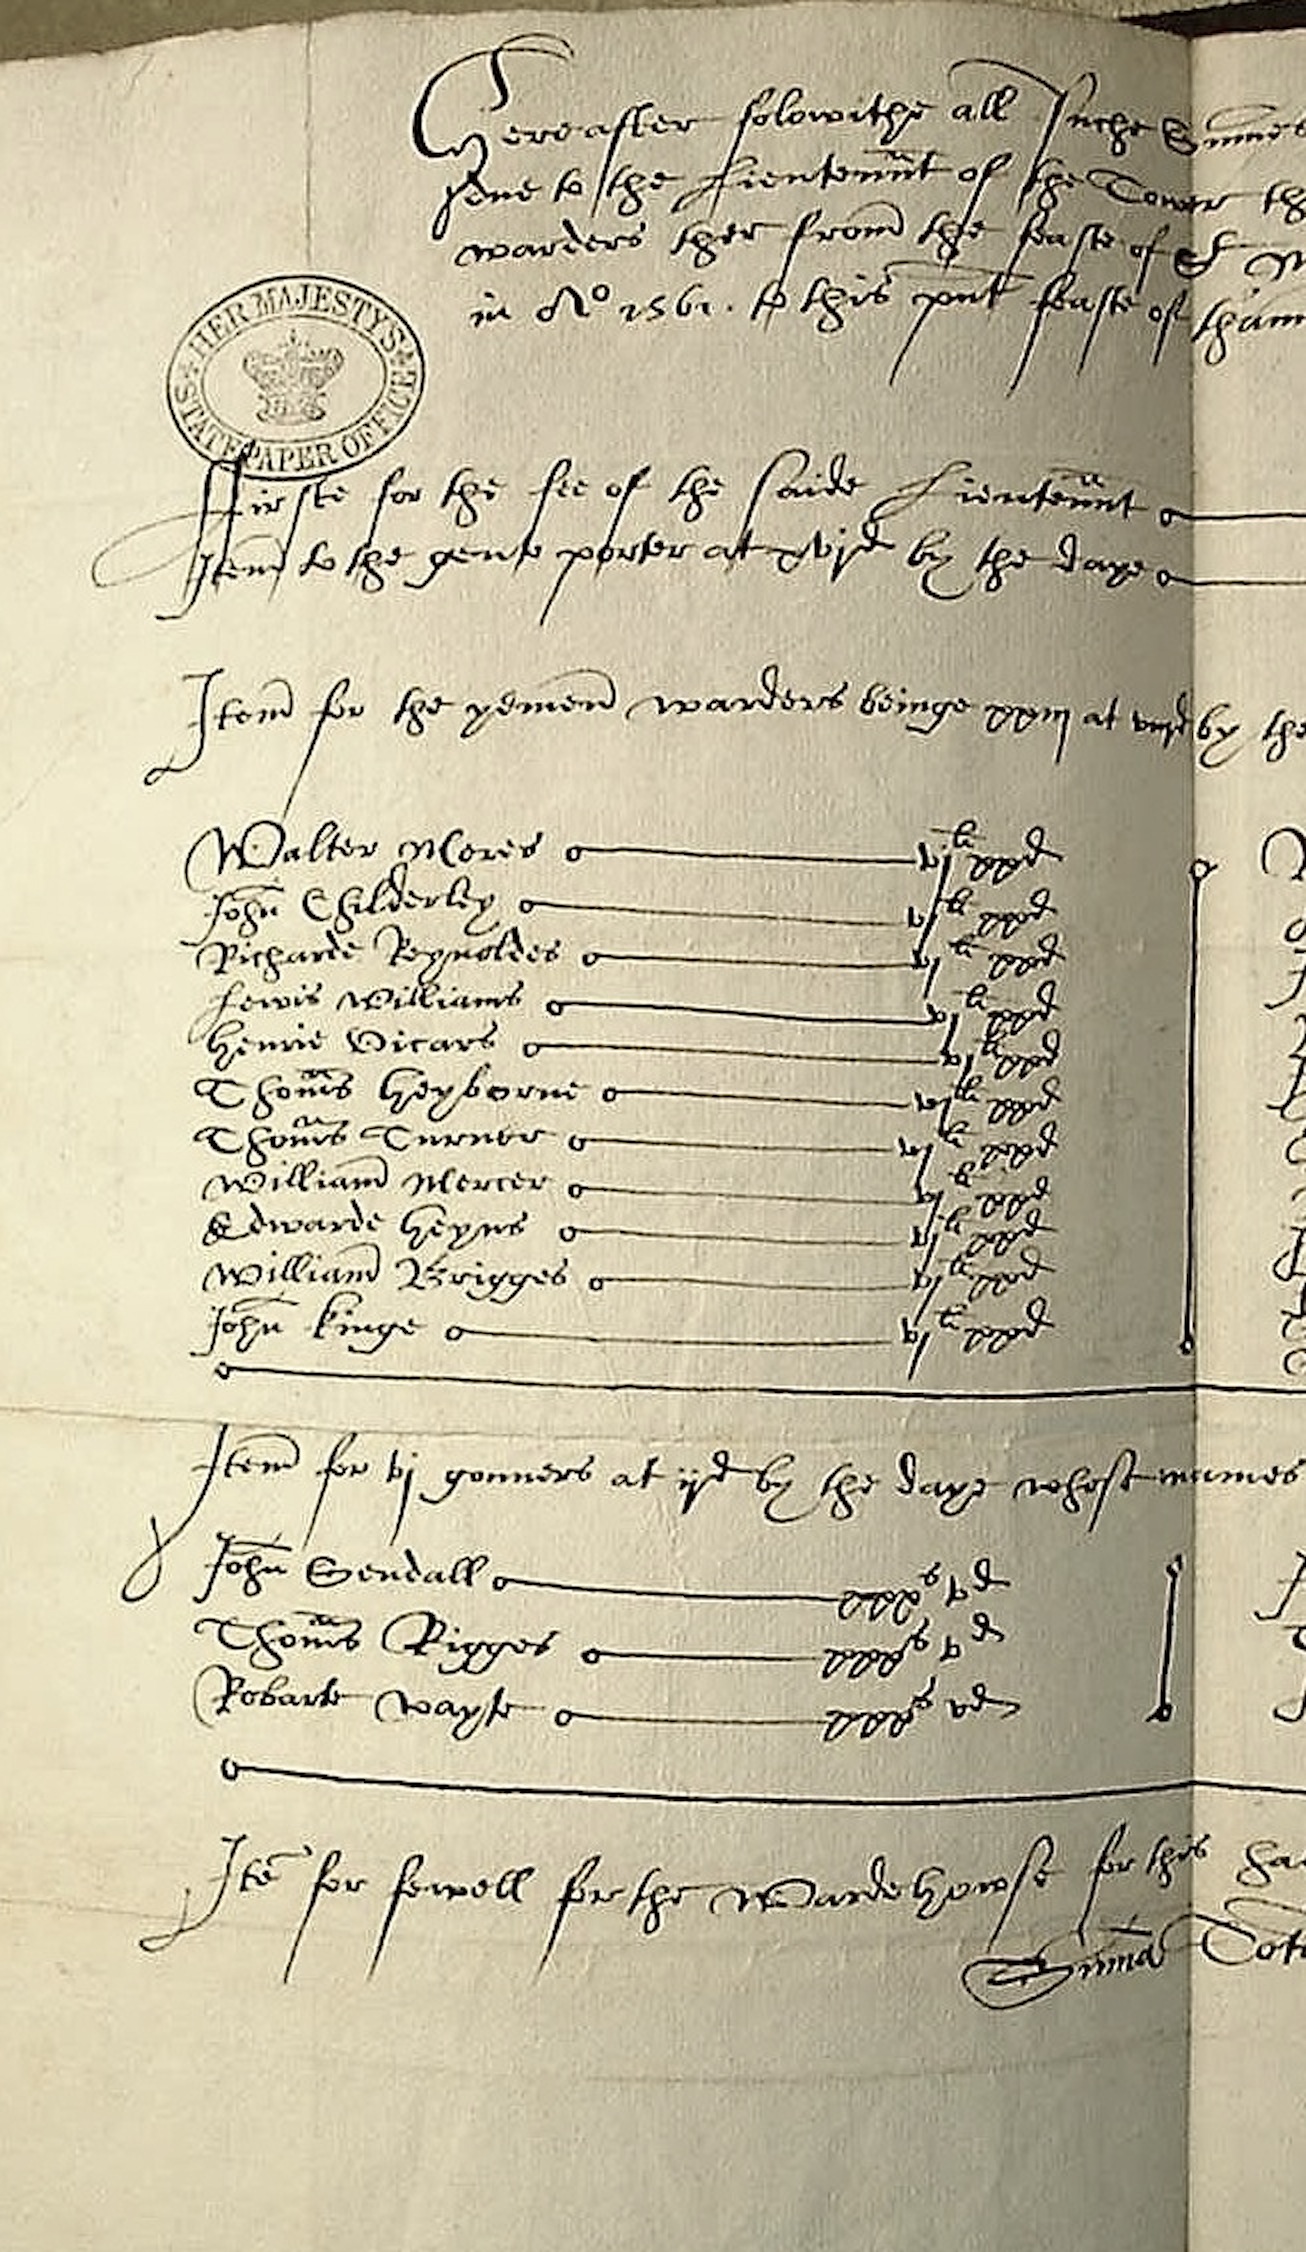 Hereafter folowithe all Suche Sum̅es
dne to the Lieuten̅nt of the Tower th
warders ther from̅ the feaste of St M
in Ao 1561. to this pn̅t feaste of thann
HER MAJESTY'S STATE PAPER OFFICE
Firste for the fee of the saide Lieuten̅nt
Item̅ to the gent porter at xvjd by the daye
Item̅ for the yemen̅ warders beinge xxiij at viijd by the
Walter Meres vjli xxd
John̅ Childerley vjli xxd
Richarde Reynoldes vjli xxd
Lewis Williams vjli xxd
Henrie Vicars vjli xxd
Thom̅s Heyborne vjli xxd
Thom̅s Turner vjli xxd
William̅ Mercer vjli xxd
Edwarde Heyns vjli xxd
William̅ Brigges vjli xxd
John̅ Kinge vjli xxd
Item̅ for vj gonners at ijd by the daye whose names
John̅ Sendall xxxs vd
Thom̅s Rigges xxxs vd
Robarte Wayte xxxs vd
Ite̅ for fewell for the Wardehowse for this ha
Sum̅a Tot